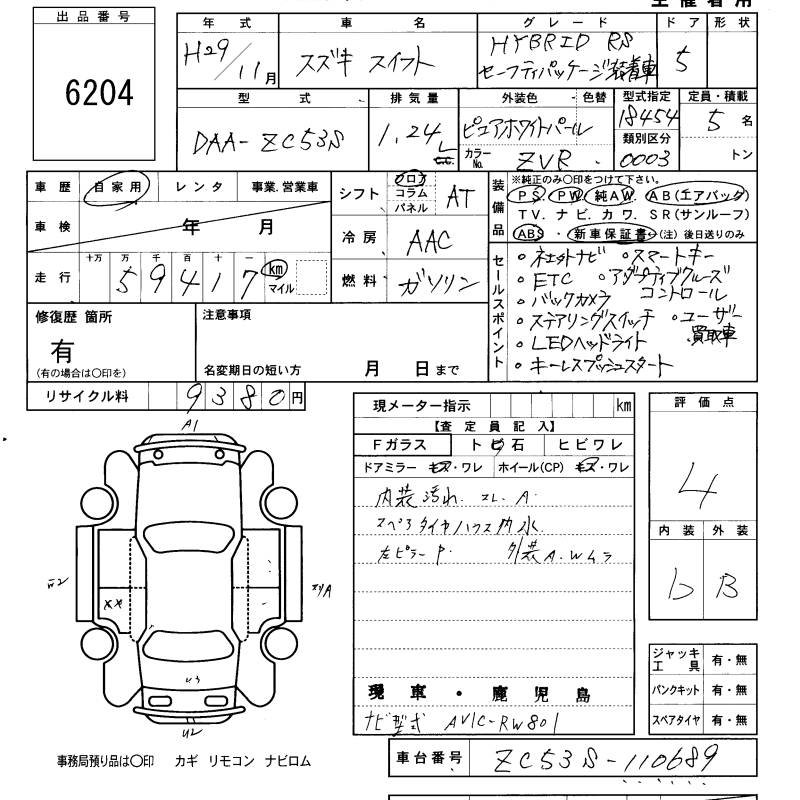 出品番号
6204
年式 車名 グレード ドア 形状
H29/11月 スズキ スイフト HYBRID RS セーフティパッケージ装着車 5
型式 排気量 外装色 色替 型式指定 定員・積載
DAA-ZC53S 1.24L ピュアホワイトパール 18454 5名
カラーNo. ZVR 類別区分 0003 トン
車歴 自家用 レンタ 事業.営業車
シフト フロア コラム パネル AT
車検 年 月
冷房 AAC
走行 十万 万 千 百 十 一
59417 km マイル
燃料 ガソリン
装備品 ※純正のみ〇印をつけて下さい。
PS. PW. 純AW. AB(エアバッグ)
TV. ナビ. カワ. SR(サンルーフ)
ABS. 新車保証書(注)後日送りのみ
セールスポイント
・社外ナビ ・スマートキー
・ETC ・アダプティブクルーズコントロール
・バックカメラ
・ステアリングスイッチ ・ユーザー買取車
・LEDヘッドライト
・キーレスプッシュスタート
修復歴 箇所
有
(有の場合は〇印を)
注意事項
名変期日の短い方 月 日まで
リサイクル料 9380円
現メーター指示 km
【査定員記入】
Fガラス トビ石 ヒビワレ
ドアミラー キズ・ワレ ホイール(CP) キズ・ワレ
内装汚れ. コレ. A.
スペアタイヤハウス内水
左ピラーP. 外装A.Wムラ
現車・鹿児島
ナビ型式 AVIC-RW801
評価点
4
内装 外装
b B
ジャッキ 工具 有・無
パンクキット 有・無
スペアタイヤ 有・無
A1
W2
XX
U3
U2
事務局預り品は〇印 カギ リモコン ナビロム
車台番号 ZC53S-110689